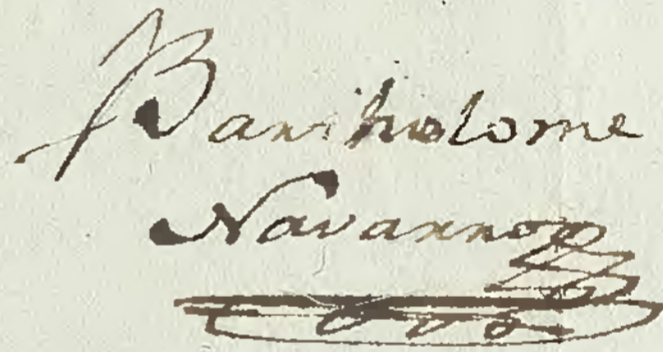 Bartholome
Navarro